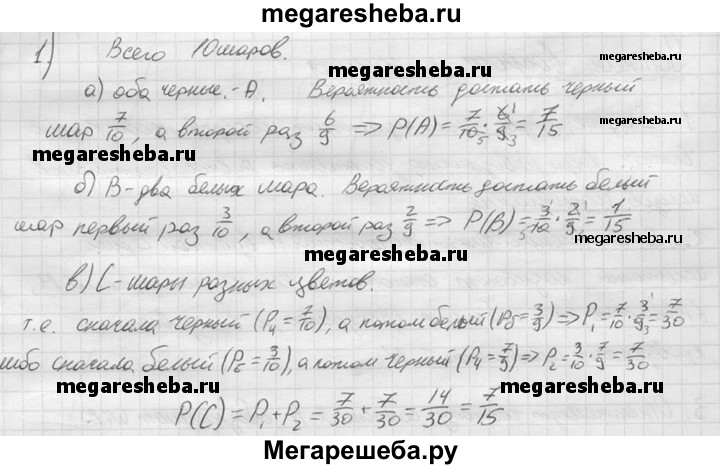 megaresheba.ru
1) Всего 10 шаров.
megaresheba.ru
megaresheba.ru
а) оба черные. - А. Вероятность достать черный
шар 7/10, а второй раз 6/9 => P(A) = 7/10 5 · 6 1/9 3 = 7/15
megaresheba.ru
megaresheba.ru
б) B - два белых шара. Вероятность достать белый
шар первый раз 3/10, а второй раз 2/9 => P(B) = 3/10 · 2/9 = 1/15
megaresheba.ru
megaresheba.ru
в) C - шары разных цветов.
т.е. сначала черный (Pч = 7/10), а потом белый (Pб = 3/9) => P1 = 7/10 · 3 1/9 3 = 7/30
либо сначала белый (Pб = 3/10), а потом черный (Pч = 7/9) => P2 = 3/10 · 7/9 = 7/30
megaresheba.ru
megaresheba.ru
P(C) = P1 + P2 = 7/30 + 7/30 = 14/30 = 7/15
Мегарешеба.ру